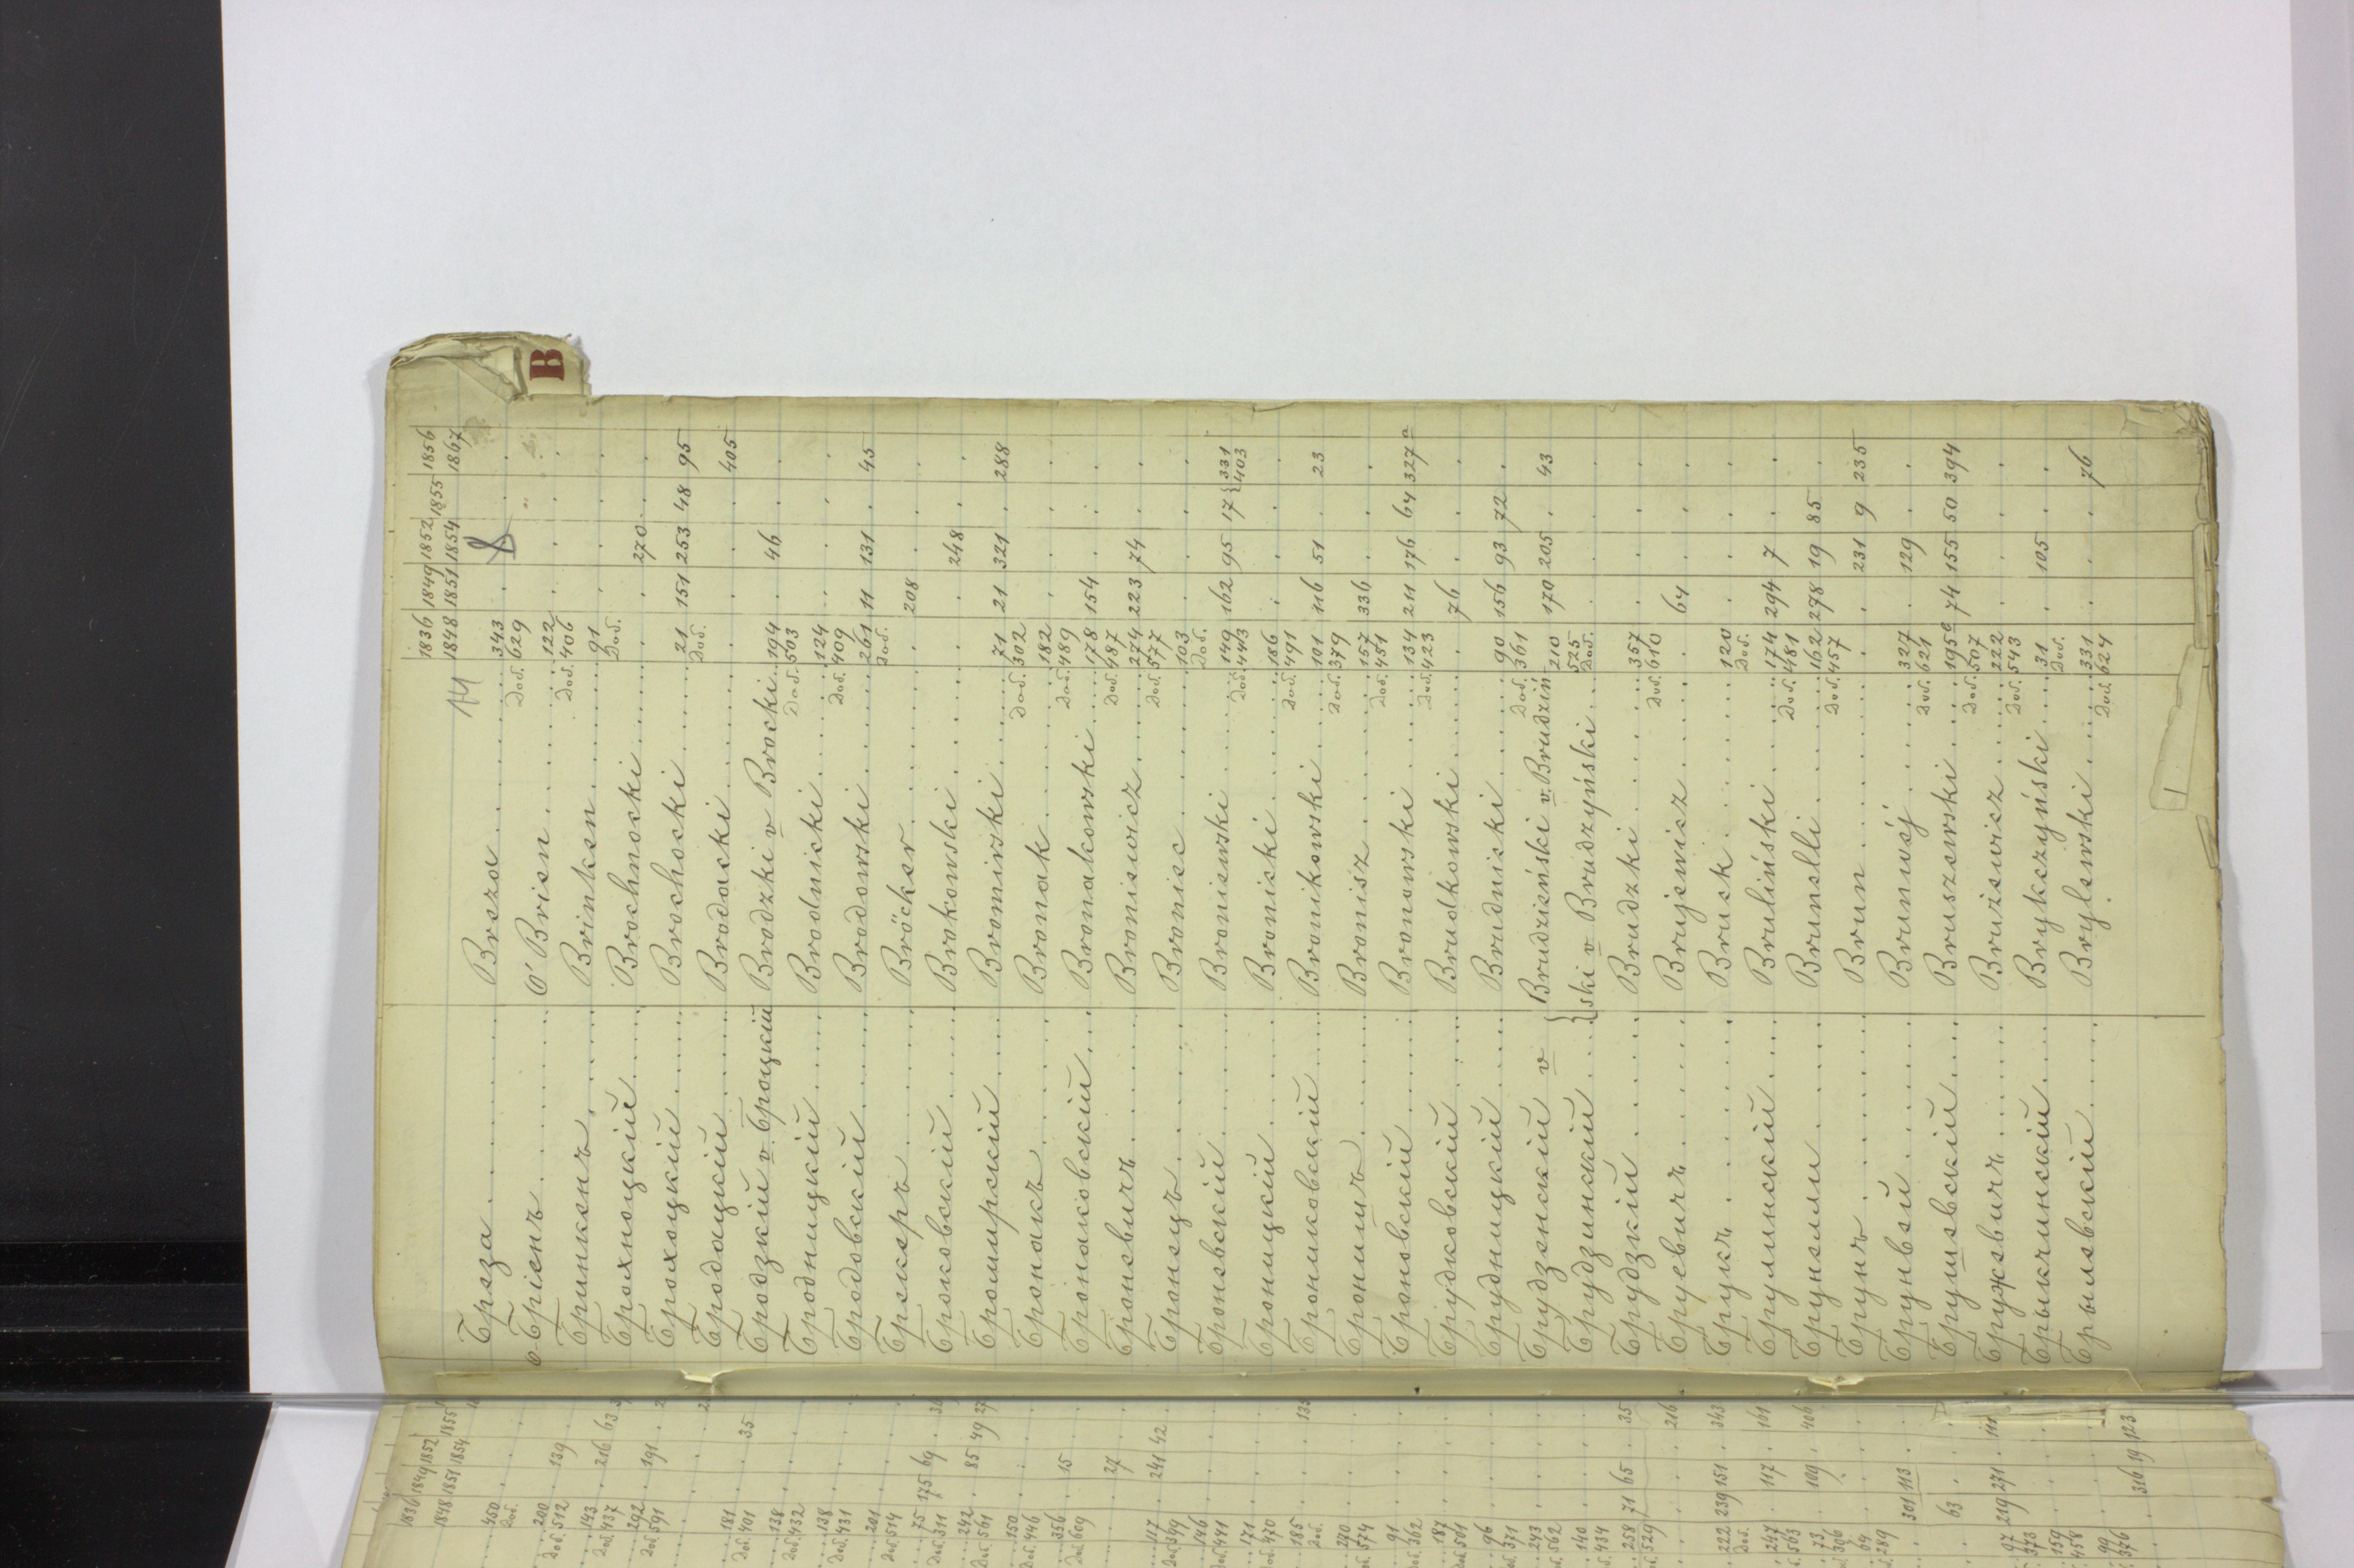 B
14
8
1836 1849 1852 1855 1856
1848 1851 1854 1867
Бреза Breza 343 . . . .
Доб. 629
О-Бріенъ O'Brien 122 . . . .
Доб. 406
Бринкенъ Brinken 91 . . . .
Доб.
Брохноцкій Brochnocki . . 270 . .
Брохоцкій Brochocki 21 151 253 48 95
Доб.
Бродацкій Brodacki . . . . 405
Бродзкій v Броцкій Brodzki v Brocki 194 . 46 . .
Доб. 503
Бродницкій Brodnicki 124 . . . .
Доб. 409
Бродовскій Brodowski 261 11 131 . 45
Доб.
Брекеръ Bröcker . 208 . . .
Броковскій Brokowski . . 248 . .
Бромирскій Bromirski 71 21 321 . 288
Доб. 302
Бронакъ Bronak 182 . . . .
Доб. 489
Бронаковскій Bronakowski 178 154 . . .
Доб. 487
Броневичъ Broniewicz 274 223 74 . .
Доб. 577
Бронецъ Broniec 103 . . . .
Доб.
Броневскій Broniewski 149 162 95 17 {331
Доб. 443 403
Броницкій Bronicki 186 . . . .
Доб. 491
Брониковскій Bronikowski 101 116 51 . 23
Доб. 379
Бронишъ Bronisz 157 336 . . .
Доб. 451
Броновскій Bronowski 134 211 176 64 327a
Доб. 423
Брудковскій Brudkowski . 76 . . .
Брудницкій Brudnicki 90 156 93 72 .
Доб. 361
Брудзенскій v { Brudzieński v Brudziń 210 170 205 . 43
Брудзинскій {ski v Brudzyński 525
Доб.
Брудзкій Brudzki 357 . . . .
Доб. 610
Бруевичъ Brujewicz . 64 . . .
Брукъ Bruck 120 . . . .
Доб.
Брулинскій Bruliński 174 294 7 . .
Доб. 481
Брунелли Brunelli 162 278 19 85 .
Доб. 457
Брунъ Brun . . 231 9 235
Брунвей Brunwéj 327 . 129 . .
Доб. 621
Брушевскій Bruszewski 195a 74 155 50 394
Доб. 507
Бружевичъ Brużewicz 222 . . . .
Доб. 543
Брыкчинскій Brykczyński 31 . 105 . .
Доб.
Брылевскій Brylewski 331 . . . 76
Доб. 624
1836 1849 1852 1855
1848 1851 1854
450
Доб.
200 139
Доб. 512
143 216 63
Доб. 437
292 191
Доб. 591
181 35
Доб. 401
138
Доб. 432
138
Доб. 431
201
Доб. 514
75 175 69
Доб. 311
242 85 49
Доб. 561
150
Доб. 446
356 15
Доб. 609
27
117 241 42
Доб. 399
146
Доб. 441
171
Доб. 470
185
Доб.
270
Доб. 574
91
Доб. 362
187
Доб. 501
96
371
243
Доб. 562
140
434
258 71 65 35
Доб. 529
216
222 239 151 343
Доб.
247 117 161
563
73 109 406
306
64
289
301 113
63
219 271
97
373
159
458
99
376
316 19 123